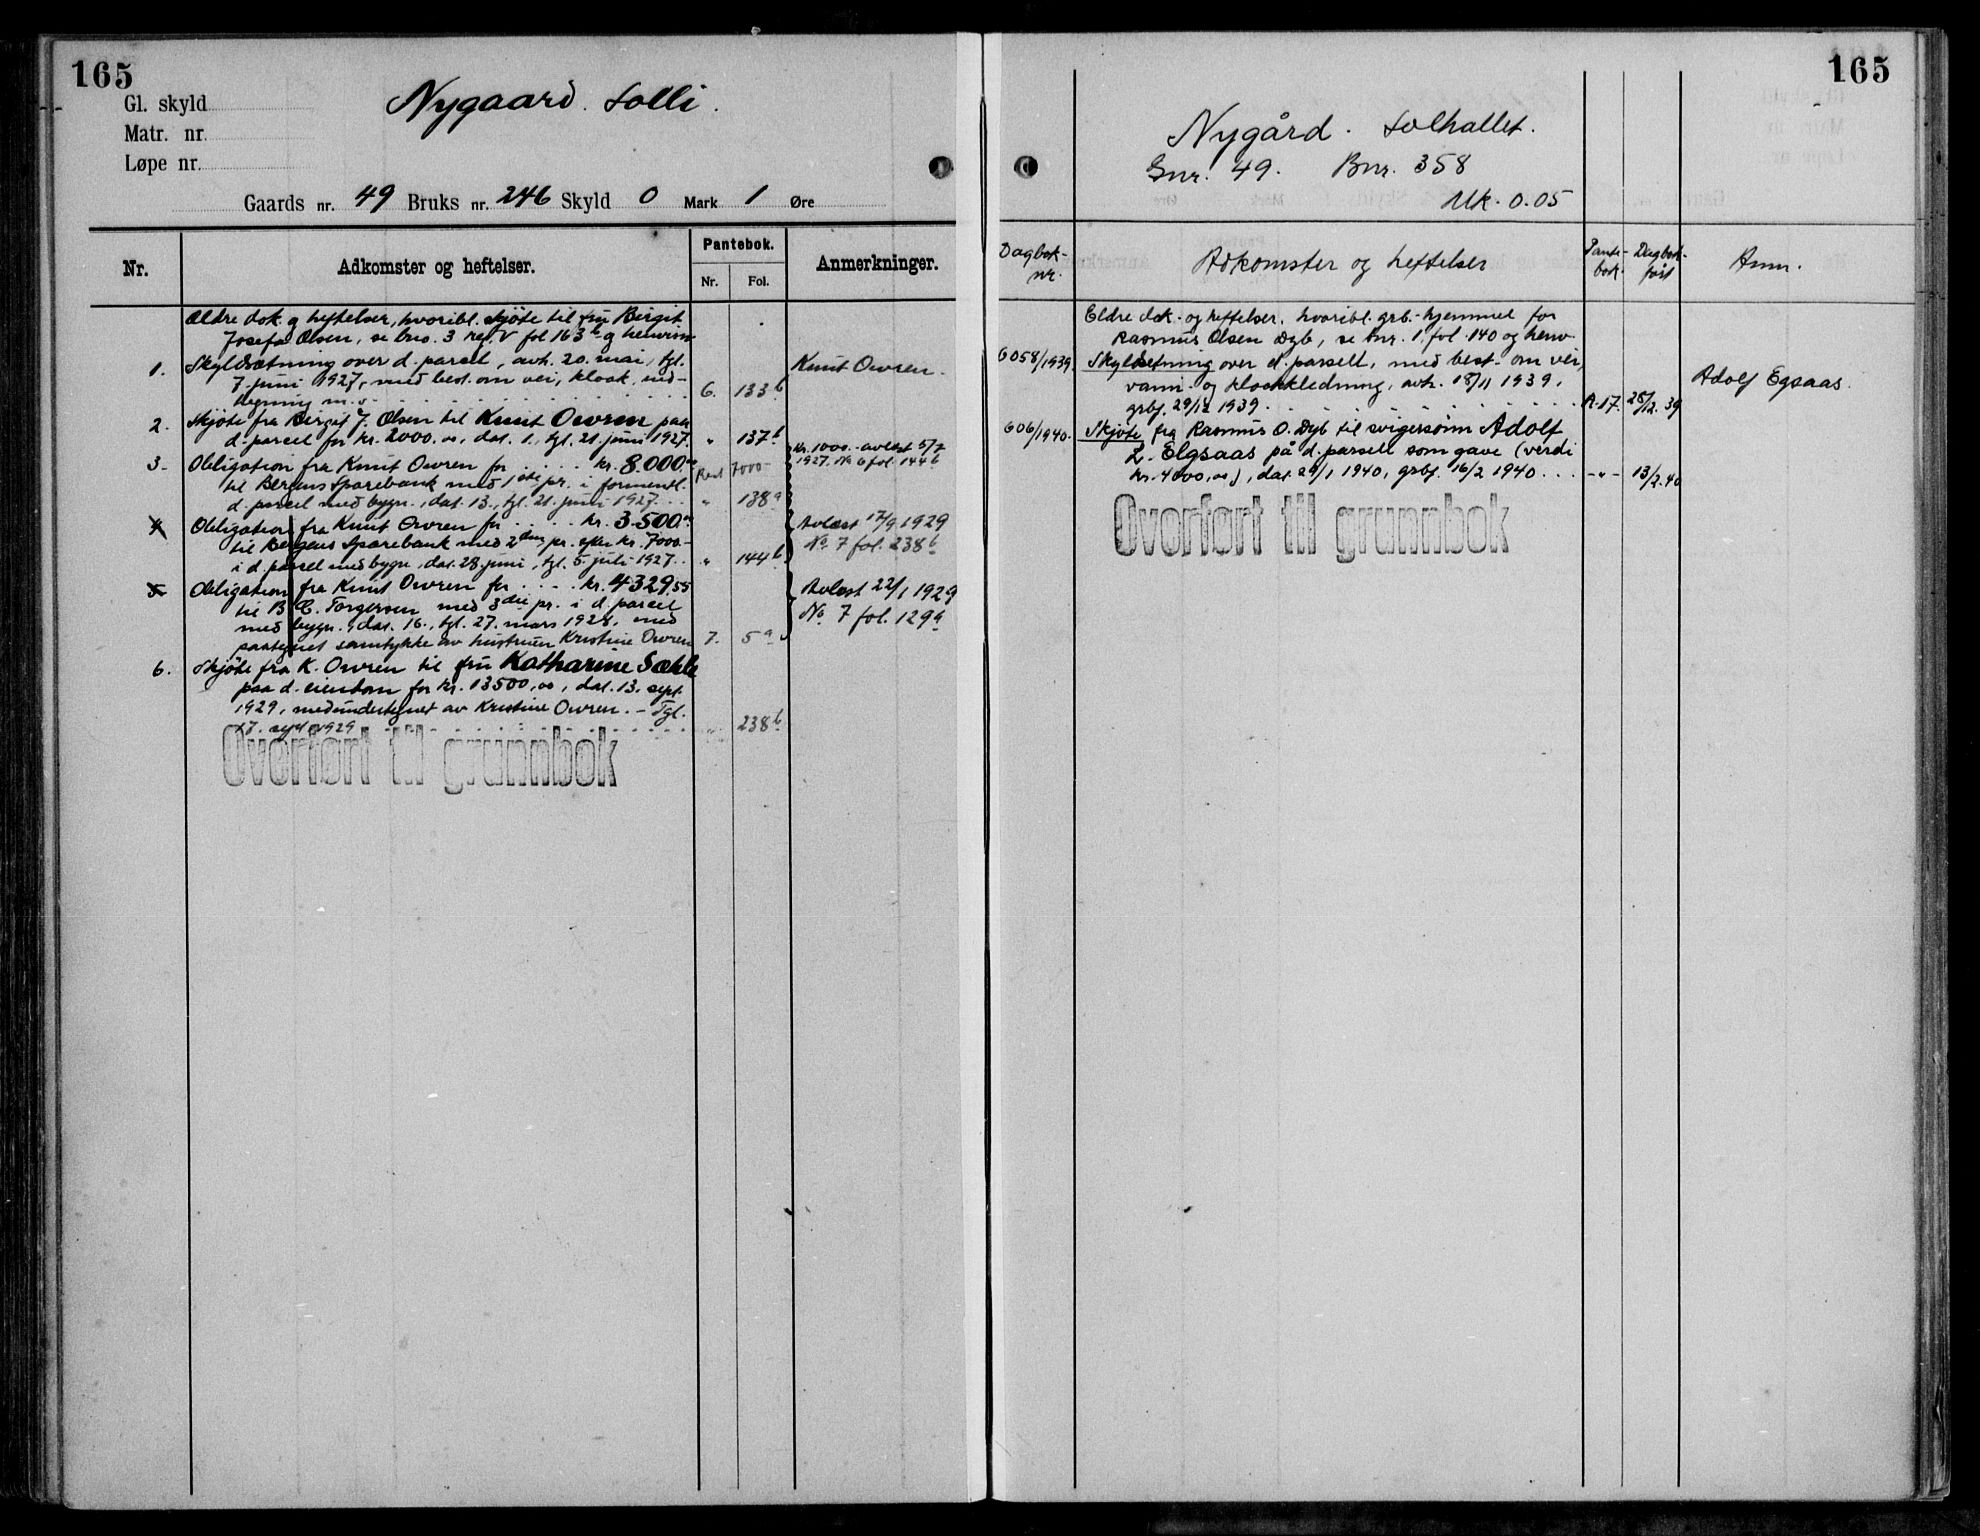 165
Gl. skyld
Matr. nr.
Løpe nr.
Nygaard. Solli.
Gaards nr. 49 Bruks nr. 246 Skyld 0 Mark 1 Øre
Nr.
Adkomster og heftelser.
Pantebok.
Nr.
Fol.
Anmerkninger.
Ældre dok. g heftelser, hvoribl. skjøte til fru Birgit
Josefa Olsen, se bno. 3 reg. V fol 163 b g henvisn.
1. Skyldsætning over d. parsel, avh. 20. mai, tgl.
7. juni 1927, med best. om vei, kloak, ned-
lægning m.v. 6. 133 b
Knut Owren.
2. Skjøte fra Birgit J. Olsen til Knut Owren paa
d. parcel for kr. 2000.00, dat. 1., tgl. 21. juni 1927. " 137 b
3. Obligation fra Knut Owren for kr. 8.000.00 Rest 7000-
til Bergens Sparebank med 1ste pr. i formentl.
d. parcel med bygn., dat. 13., tgl. 21. juni 1927. " 138 a
kr. 1000.- avløst 5/7
1927. No 6 fol. 144 b
4. Obligation fra Knut Owren for kr. 3.500.00
til Bergens Sparebank med 2den pr. efter kr. 7000.-
i d. parcel med bygn., dat. 28. juni, tgl. 5. juli 1927. " 144 b
Avløst 17/9 1929
No. 7 fol. 238 b
5. Obligation fra Knut Owren for kr. 4329.55
til B. C. Torgersen med 3die pr. i d. parcel
med bygn., dat. 16., tgl. 27. mars 1928, med
paategnet samtykke av hustruen Kristine Owren 7. 5 a
Avløst 22/1 1929
No. 7 fol. 129 a
6. Skjøte fra K. Owren til fru Katharine Sækle
paa d. eiendom for kr. 13500,00, dat. 13. sept.
1929, medundertegnet av Kristine Owren. - Tgl.
17. sept. 1929 " 238 b
Overført til grunnbok
165
Nygård. Solhallet.
Gnr. 49. Bnr. 358
Mk. 0.05
Dagbok-
nr.
Adkomster og heftelser
Pante-
bok.
Dagbok-
ført
Anm.
Eldre dok. og heftelser, hvoribl. grb.-hjemmel for
Rasmus Olsen Dyb, se bnr. 1, fol. 140 og henv.
6058/1939 Skyldsetning over d. parsell, med best. om vei,
vann- og kloakkledning, avh. 18/11 1939,
grbf. 29/12 1939. A.17. 28/12.39
Adolf Egsaas.
606/1940. Skjøte fra Rasmus O. Dyb til svigersønn Adolf
L. Elgsaas på d. parsell som gave (verdi
kr. 4000,00), dat. 29/1 1940, grbf. 16/2 1940. -"- 13/2.40
Overført til grunnbok